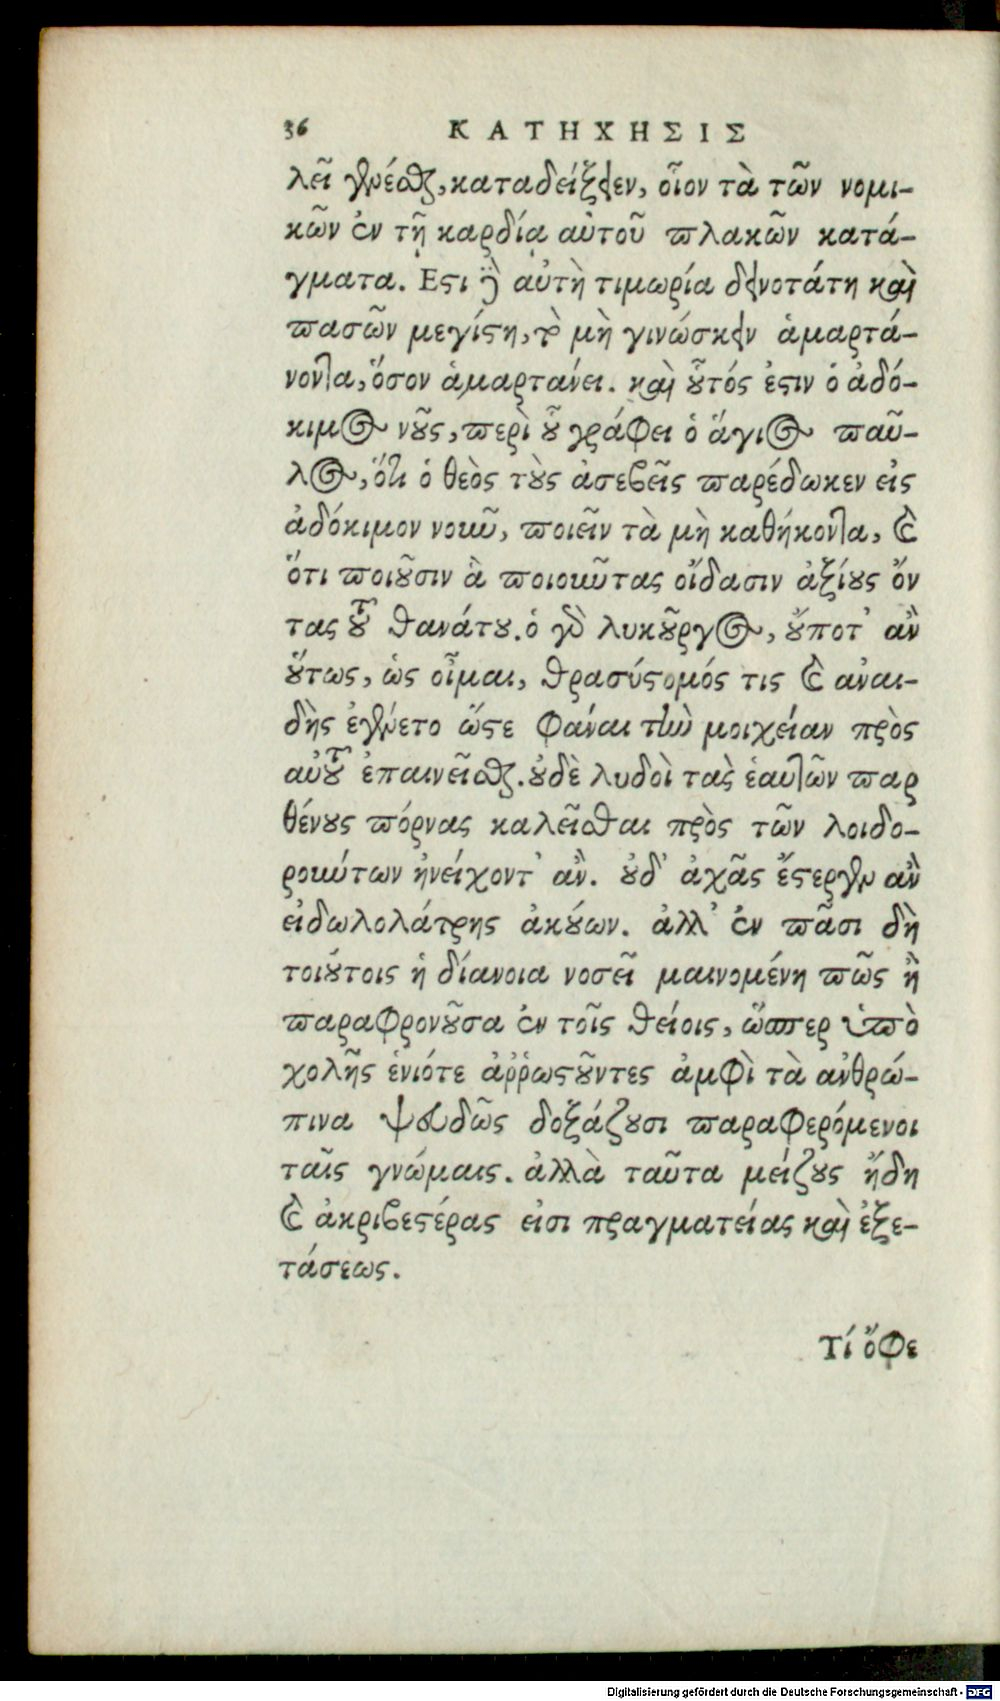 36 ΚΑΤΗΧΗΣΙΣ
λεῖ γενέσθαι, καταδείξειεν, οἷον τὰ τῶν νομι-
κῶν ἐν τῇ καρδίᾳ αὐτοῦ πλακῶν κατά-
γματα. Εστι δὲ αὐτὴ τιμωρία δεινοτάτη καὶ
πασῶν μεγίστη, τὸ μὴ γινώσκειν ἁμαρτά-
νοντα, ὅσον ἁμαρτάνει. καὶ οὗτός ἐστιν ὁ ἀδό-
κιμος νοῦς, περὶ οὗ γράφει ὁ ἅγιος παῦ-
λος, ὅτι ὁ θεὸς τοὺς ἀσεβεῖς παρέδωκεν εἰς
ἀδόκιμον νοῦν, ποιεῖν τὰ μὴ καθήκοντα, καὶ
ὅτι ποιοῦσιν ἃ ποιοῦντας οἴδασιν ἀξίους ὄν
τας τοῦ θανάτου. ὁ γὰρ λυκοῦργος, οὔποτ' ἂν
οὕτως, ὡς οἶμαι, θρασύστομός τις καὶ αναι-
δὴς ἐγένετο ὥστε φάναι τὴν μοιχείαν πρὸς
αὐτοῦ ἐπαινεῖσθαι. οὐδὲ λυδοὶ τὰς ἑαυτῶν παρ
θένους πόρνας καλεῖσθαι πρὸς τῶν λοιδο-
ρούντων ἠνείχοντ' ἄν. οὐδ' ἀχᾶς ἔστεργεν ἂν
εἰδωλολάτρης ἀκούων. ἀλλ' ἐν πᾶσι δὴ
τοιούτοις ἡ δίανοια νοσεῖ μαινομένη πῶς ἢ
παραφρονοῦσα ἐν τοῖς θείοις, ὥσπερ ὑπὸ
χολῆς ἐνιότε ἀῤῥωστοῦντες ἀμφὶ τὰ ανθρώ-
πινα ψευδῶς δοξάζουσι παραφερόμενοι
ταῖς γνώμαις. ἀλλὰ ταῦτα μείζους ἤδη
καὶ ἀκριβεστέρας εἰσι πραγματείας καὶ ἐξε-
τάσεως.
Τί ὄφε
Digitalisierung gefördert durch die Deutsche Forschungsgemeinschaft - DFG